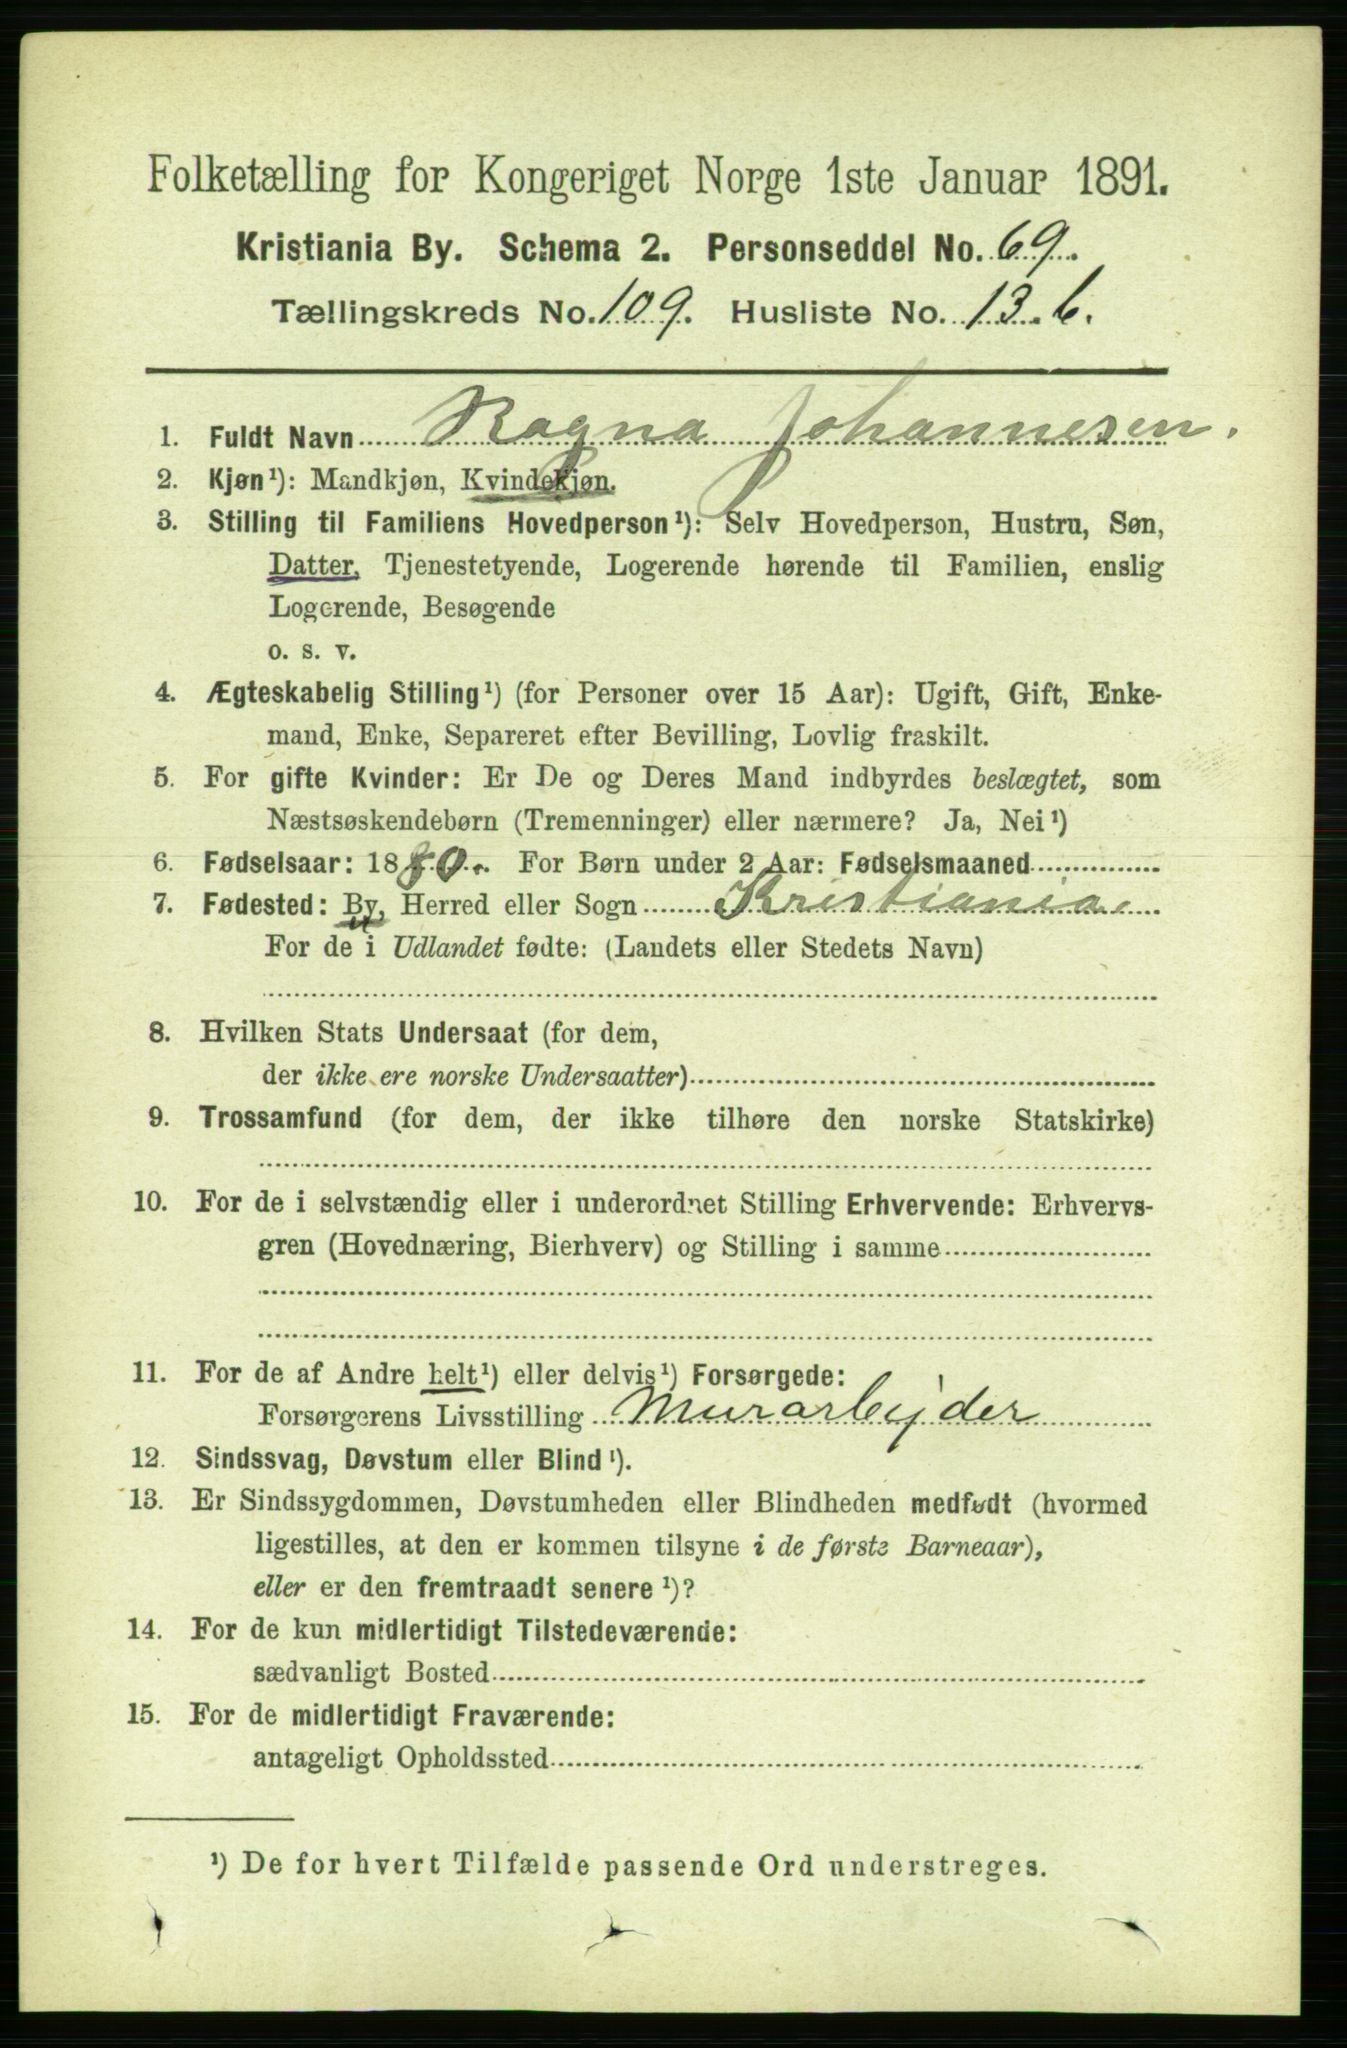 Folketælling for Kongeriget Norge 1ste Januar 1891.
Kristiania By. Schema 2. Personseddel No. 69.
Tællingskreds No. 109. Husliste No. 13.b.
1. Fuldt Navn Ragna Johannesen.
2. Kjøn¹): Mandkjøn, Kvindekjøn.
3. Stilling til Familiens Hovedperson¹): Selv Hovedperson, Hustru, Søn,
Datter, Tjenestetyende, Logerende hørende til Familien, enslig
Logerende, Besøgende
o. s. v.
4. Ægteskabelig Stilling¹) (for Personer over 15 Aar): Ugift, Gift, Enke-
mand, Enke, Separeret efter Bevilling, Lovlig fraskilt.
5. For gifte Kvinder: Er De og Deres Mand indbyrdes beslægtet, som
Næstsøskendebørn (Tremenninger) eller nærmere? Ja, Nei¹)
6. Fødselsaar: 1880. For Børn under 2 Aar: Fødselsmaaned
7. Fødested: By, Herred eller Sogn Kristiania.
For de i Udlandet fødte: (Landets eller Stedets Navn)
8. Hvilken Stats Undersaat (for dem,
der ikke ere norske Undersaatter)
9. Trossamfund (for dem, der ikke tilhøre den norske Statskirke)
10. For de i selvstændig eller i underordnet Stilling Erhvervende: Erhvervs-
gren (Hovednæring, Bierhverv) og Stilling i samme
11. For de af Andre helt¹) eller delvis¹) Forsørgede:
Forsørgerens Livsstilling Murarbejder
12. Sindssvag, Døvstum eller Blind¹).
13. Er Sindssygdommen, Døvstumheden eller Blindheden medfødt (hvormed
ligestilles, at den er kommen tilsyne i de første Barneaar),
eller er den fremtraadt senere¹)?
14. For de kun midlertidigt Tilstedeværende:
sædvanligt Bosted
15. For de midlertidigt Fraværende:
antageligt Opholdssted
¹) De for hvert Tilfælde passende Ord understreges.